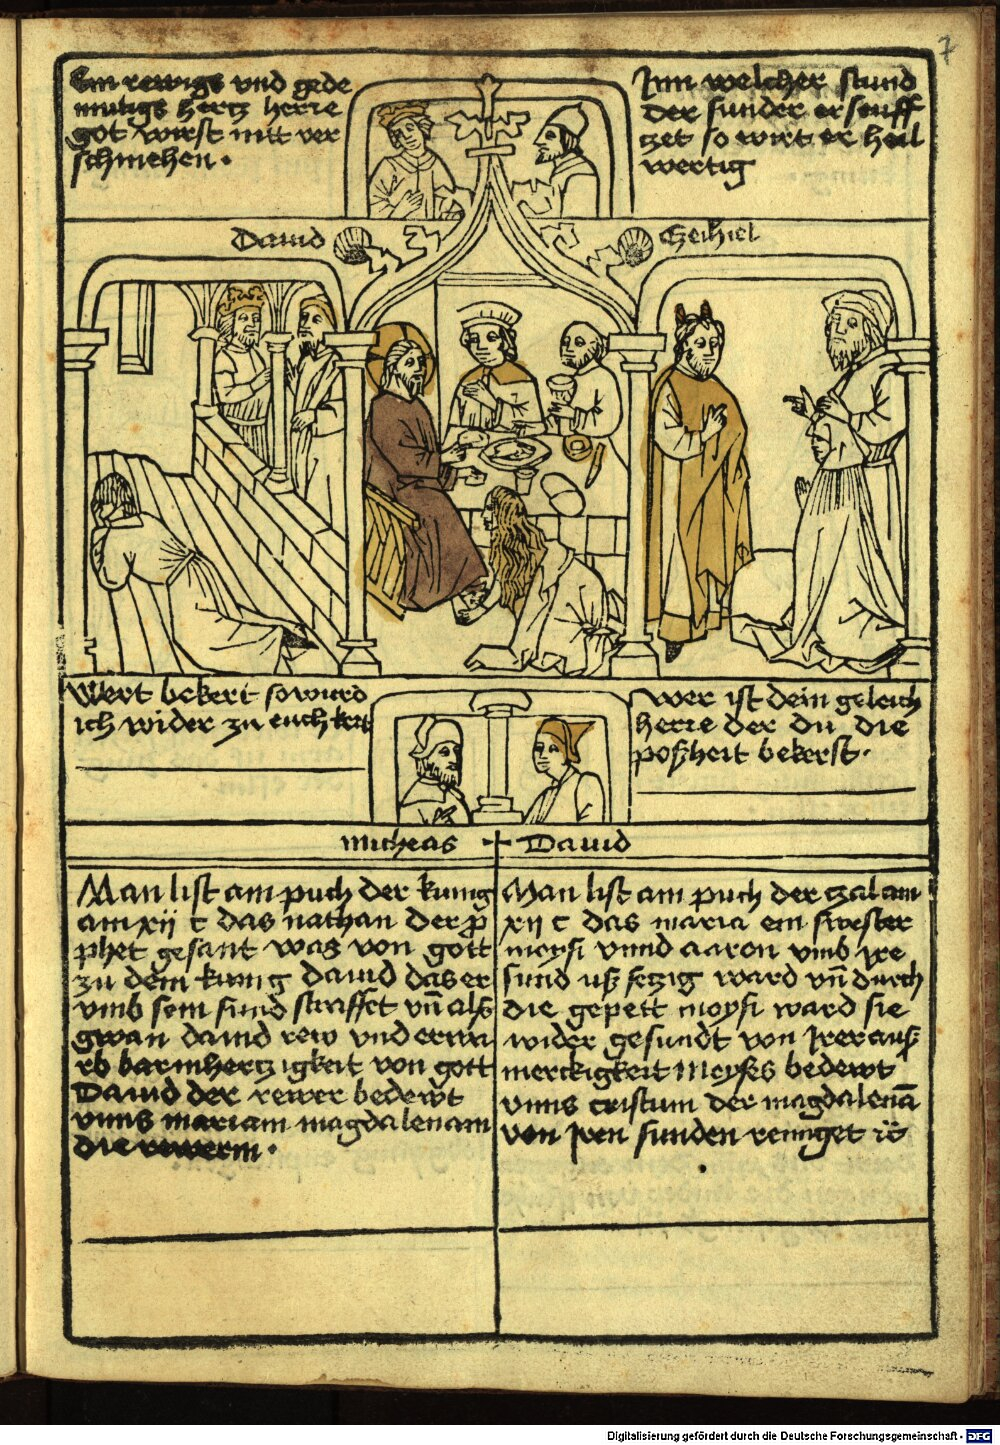 7
Ein rewigs vnd gede
mutigs hertz herre
got wirst nitt ver
schmehen ·
Inn welcher stund
der sunder erseuff
zet so wirt er heil
wertig
Dauid
Ezeihiel
Wert bekert so wurd
ich wider zu euch kert
Wer ist dein geleich
herre der du die
poßheit bekerst ·
Micheas
Dauid
Man list am puch der kunig
am xij c das nathan der p̄
phet gesant was von gott
zu dem kunig Dauid das er
vmb sein sund straffet vn̄ alß
gwan dauid rew vnd erwa
rb barmhertzigkeit von gott
Dauid der rewer bedewt
vnns mariam magdalenam
die rewerin ·
Man list am puch der zal am
xij c das maria ein swester
moysi vnnd aaron vmb ire
sund uß setzig ward vn̄ durch
die gepett moysi ward sie
wider gesundt von irer auß
merckigkeit Moyses bedewt
vnns cristum der magdalenā
von iren sunden reniget
Digitalisierung gefördert durch die Deutsche Forschungsgemeinschaft - DFG